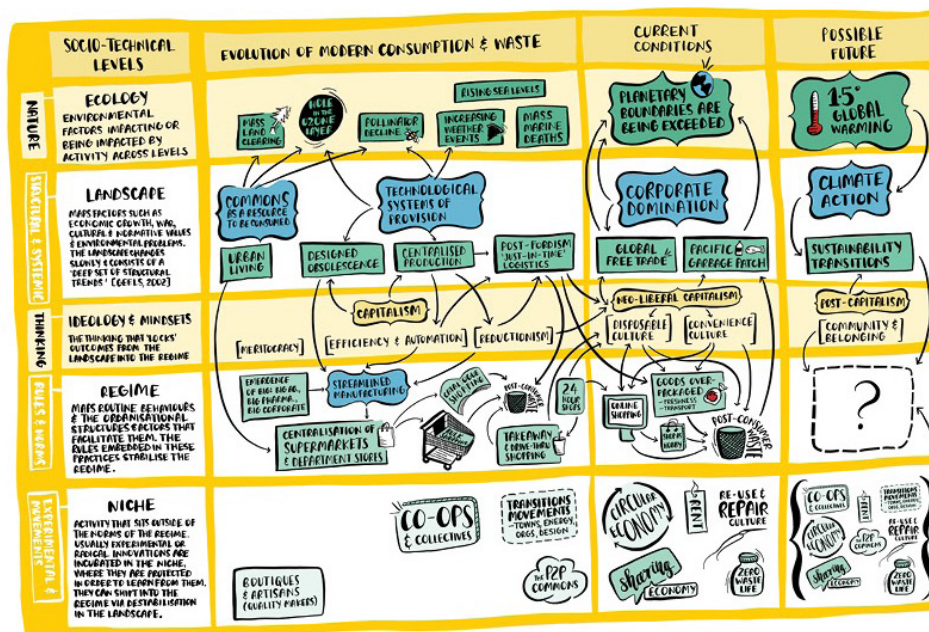 SOCIO-TECHNICAL
LEVELS
EVOLUTION OF MODERN CONSUMPTION & WASTE
CURRENT
CONDITIONS
POSSIBLE
FUTURE
NATURE
ECOLOGY
ENVIRONMENTAL
FACTORS IMPACTING OR
BEING IMPACTED BY
ACTIVITY ACROSS LEVELS
MASS
LAND
CLEARING
HOLE
IN THE
OZONE
LAYER
POLLINATOR
DECLINE
RISING SEA LEVELS
INCREASING
WEATHER
EVENTS
MASS
MARINE
DEATHS
PLANETARY
BOUNDARIES ARE
BEING EXCEEDED
1.5°
GLOBAL
WARMING
STRUCTURAL & SYSTEMIC
LANDSCAPE
MAPS FACTORS SUCH AS
ECONOMIC GROWTH, WAR,
CULTURAL & NORMATIVE VALUES
& ENVIRONMENTAL PROBLEMS.
THE LANDSCAPE CHANGES
SLOWLY & CONSISTS OF A
'DEEP SET OF STRUCTURAL
TRENDS' [GEELS, 2002]
COMMONS
AS A RESOURCE
TO BE CONSUMED
TECHNOLOGICAL
SYSTEMS OF
PROVISION
URBAN
LIVING
DESIGNED
OBSOLESCENCE
CENTRALISED
PRODUCTION
POST-FORDISM
'JUST-IN-TIME'
LOGISTICS
CORPORATE
DOMINATION
GLOBAL
FREE TRADE
PACIFIC
GARBAGE PATCH
CLIMATE
ACTION
SUSTAINABILITY
TRANSITIONS
THINKING
IDEOLOGY & MINDSETS
THE THINKING THAT 'LOCKS'
OUTCOMES FROM THE
LANDSCAPE INTO THE REGIME
CAPITALISM
[MERITOCRACY]
[EFFICIENCY & AUTOMATION]
[REDUCTIONISM]
NEO-LIBERAL CAPITALISM
[DISPOSABLE
CULTURE]
[CONVENIENCE
CULTURE]
POST-CAPITALISM
[COMMUNITY &
BELONGING]
RULES & NORMS
REGIME
MAPS ROUTINE BEHAVIOURS
& THE ORGANISATIONAL
STRUCTURES & FACTORS THAT
FACILITATE THEM. THE
RULES EMBEDDED IN THESE
PRACTICES STABILISE THE
REGIME.
EMERGENCE
OF BIG: BIG AG,
BIG PHARMA,
BIG CORPORATE
STREAMLINED
MANUFACTURING
CENTRALISATION OF
SUPERMARKETS
& DEPARTMENT STORES
SHOPPING
POST-CONSUMER
WASTE
TAKEAWAY
& DRIVE-THRU
SHOPPING
24
HOUR
SHOPS
ONLINE
SHOPPING
GOODS OVER-
PACKAGED
-FRESHNESS
-TRANSPORT
SHOP AS
HOBBY
POST-CONSUMER
WASTE
?
EXPERIMENTAL &
MOVEMENTS
NICHE
ACTIVITY THAT SITS OUTSIDE OF
THE NORMS OF THE REGIME.
USUALLY EXPERIMENTAL OR
RADICAL INNOVATIONS ARE
INCUBATED IN THE NICHE,
WHERE THEY ARE PROTECTED
IN ORDER TO LEARN FROM THEM.
THEY CAN SHIFT INTO THE
REGIME VIA DESTABILISATION
IN THE LANDSCAPE.
BOUTIQUES
& ARTISANS
(QUALITY MAKERS)
CO-OPS
& COLLECTIVES
TRANSITIONS
MOVEMENTS
-TOWNS, ENERGY,
ORGS, DESIGN
THE P2P
COMMONS
CIRCULAR
ECONOMY
RENT
RE-USE &
REPAIR
CULTURE
Sharing
ECONOMY
ZERO
WASTE
LIFE
CO-OPS
& COLLECTIVES
TRANSITIONS
MOVEMENTS
-TOWNS, ENERGY,
ORGS, DESIGN
RENT
CIRCULAR
ECONOMY
RE-USE &
REPAIR
CULTURE
THE P2P
COMMONS
Sharing
ECONOMY
ZERO
WASTE
LIFE